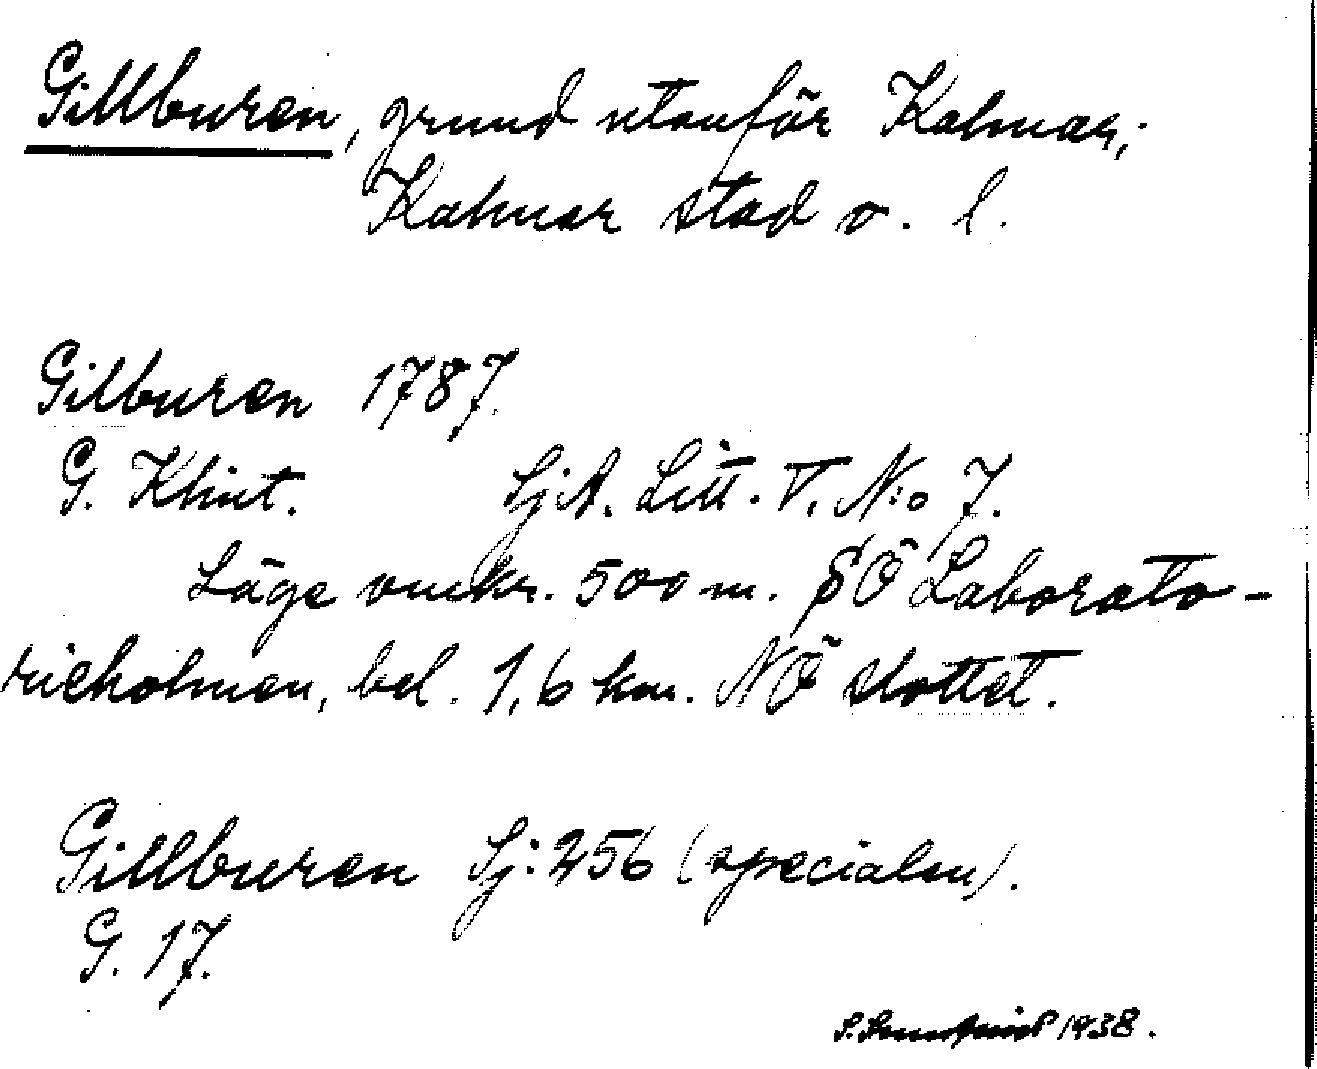 Gillburen, grund utanför Kalmar;
Kalmar stad o. l.
Gilburen 1787.
G. Klint. SjA. Litt. V. N:o 7.
Läge omkr. 500 m. SÖ Laborato-
rieholmen, bel. 1,6 km. NÖ slottet.
Gillburen Sj: 256 (specialen).
G. 17.
S. 1938.